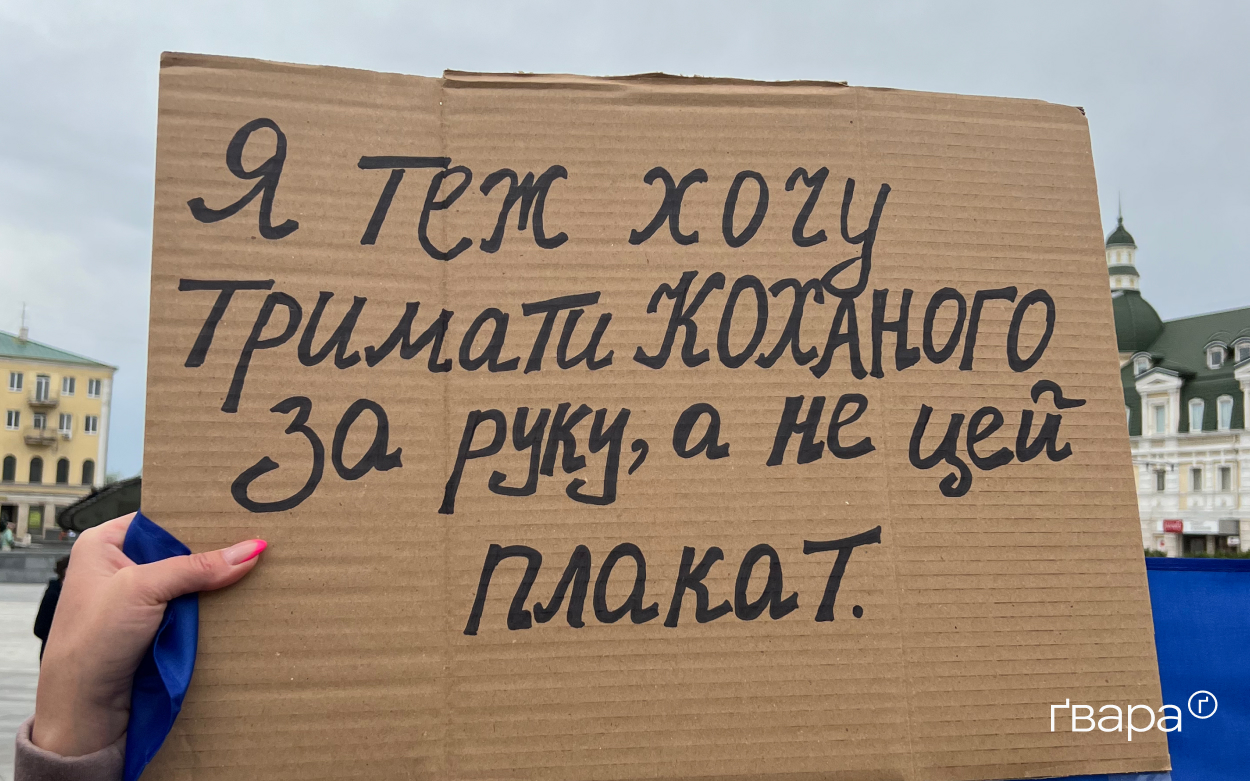 Я теж хочу
тримати коханого
за руку, а не цей
плакат.
ґвара ґ